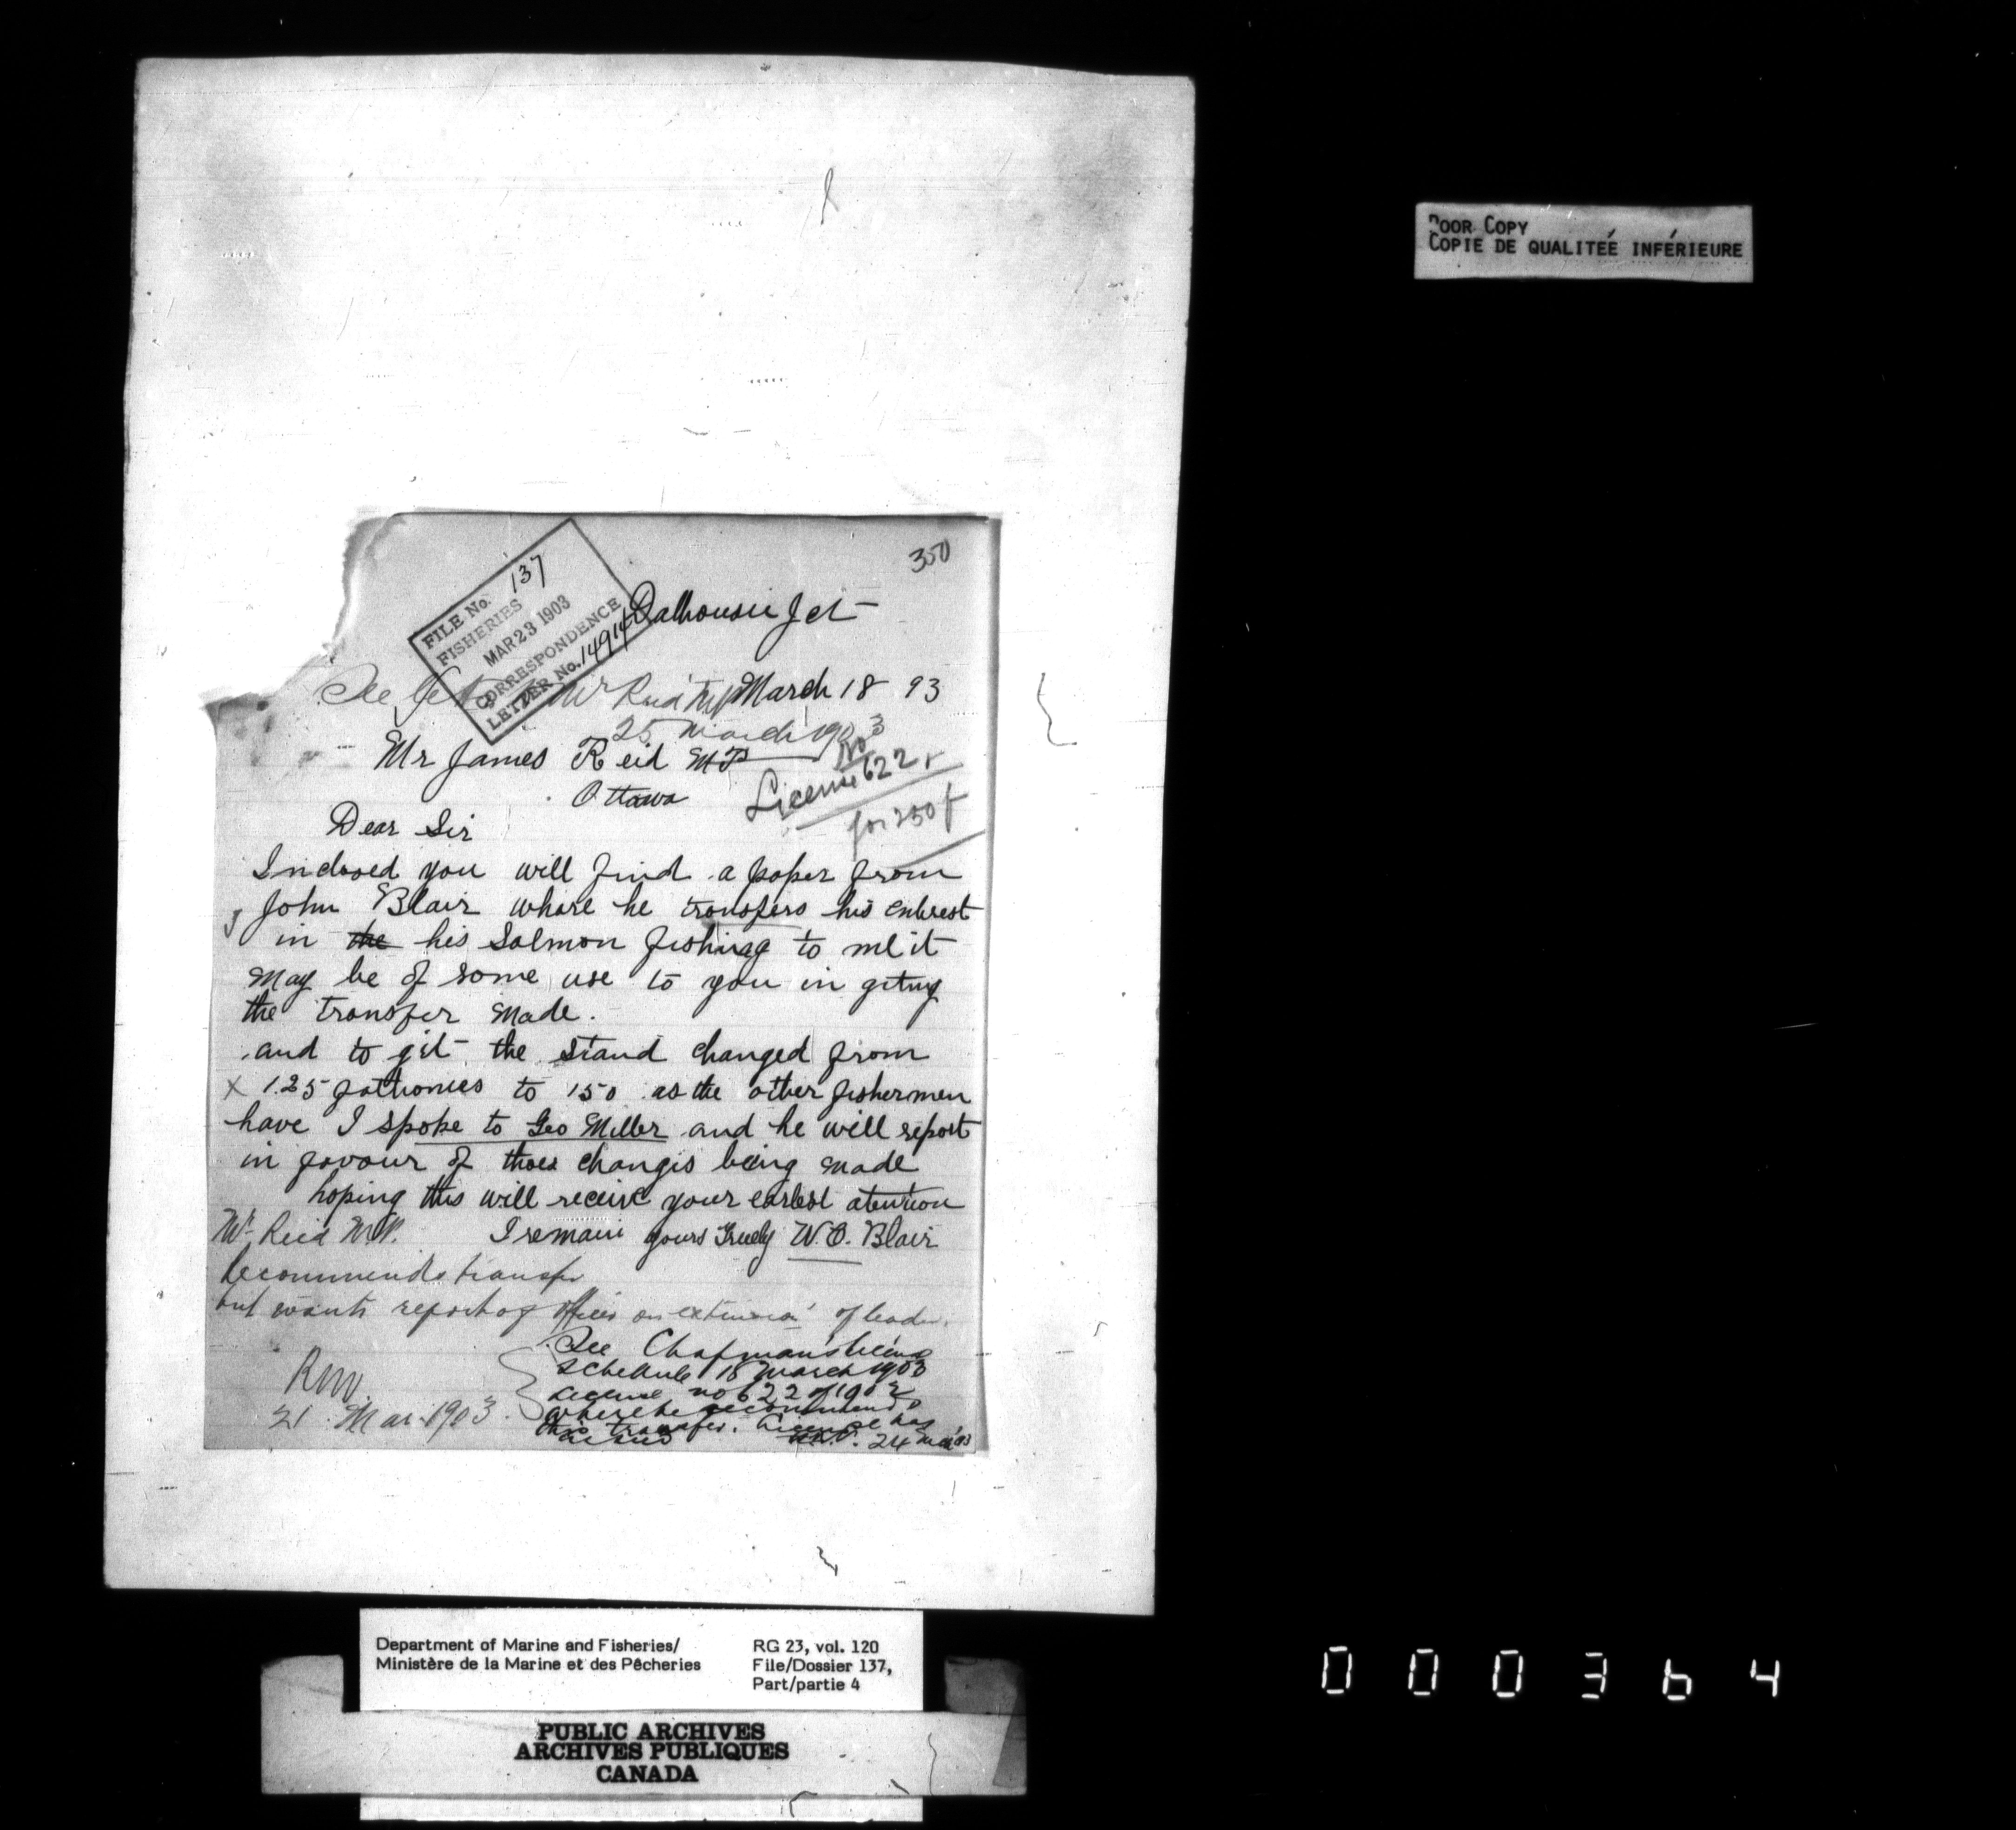 POOR COPY
COPIE DE QUALITEÉ INFÉRIEURE
350
FILE No. 137
FISHERIES
MAR 23 1903
CORRESPONDENCE
LETTER No. 14914
Dalhousie Jct
See Mr Reid MP March 18 93
25 March 1903
Mr James Reid MP
Ottawa
No
License 622
for 250 f
Dear Sir
Inclosed you will find a paper from
John Blair whare he transfers his entrest
in the his Salmon fishing to me it
may be of some use to you in giting
the transfer made.
and to git the stand changed from
x 125 fathomes to 150 as the other fishermen
have I spoke to Geo Miller and he will report
in favour of thoes changis being made
hoping this will receive your earlest atention
I remain yours Truely W.O. Blair
Mr Reid M.P.
Recommends transfer
but wants report of officer on extension of leader.
RW.
21 Mar. 1903.
See Chapman's license
schedule 18 March 1903
license no 622 of 1902
where he recommends
this transfer. License has
24 Mar '03
Department of Marine and Fisheries/
Ministère de la Marine et des Pêcheries
RG 23, vol. 120
File/Dossier 137,
Part/partie 4
PUBLIC ARCHIVES
ARCHIVES PUBLIQUES
CANADA
000364